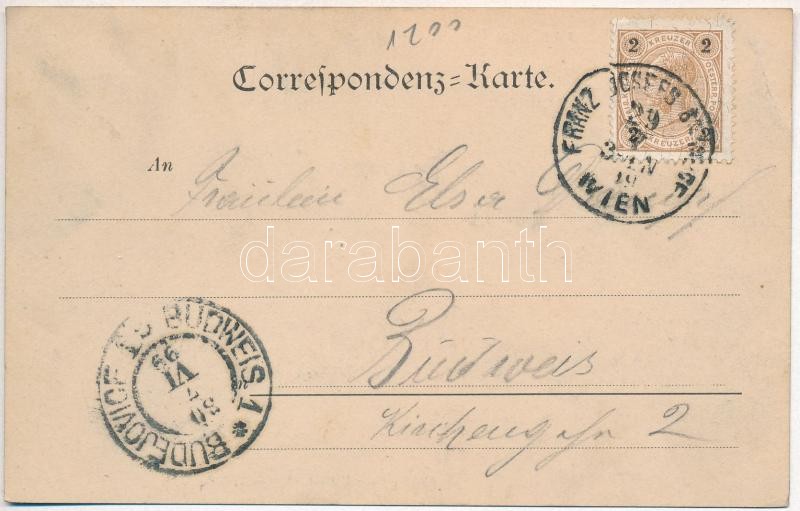 1200
Correspondenz-Karte.
2 KREUZER 2
FRANZ JOSEFS
29
WIEN
An
Fräulein Elsa
darabanth
Budweis
Kirchengasse 2
BUDWEIS 1
BUDEJOVICE
99
VI
30